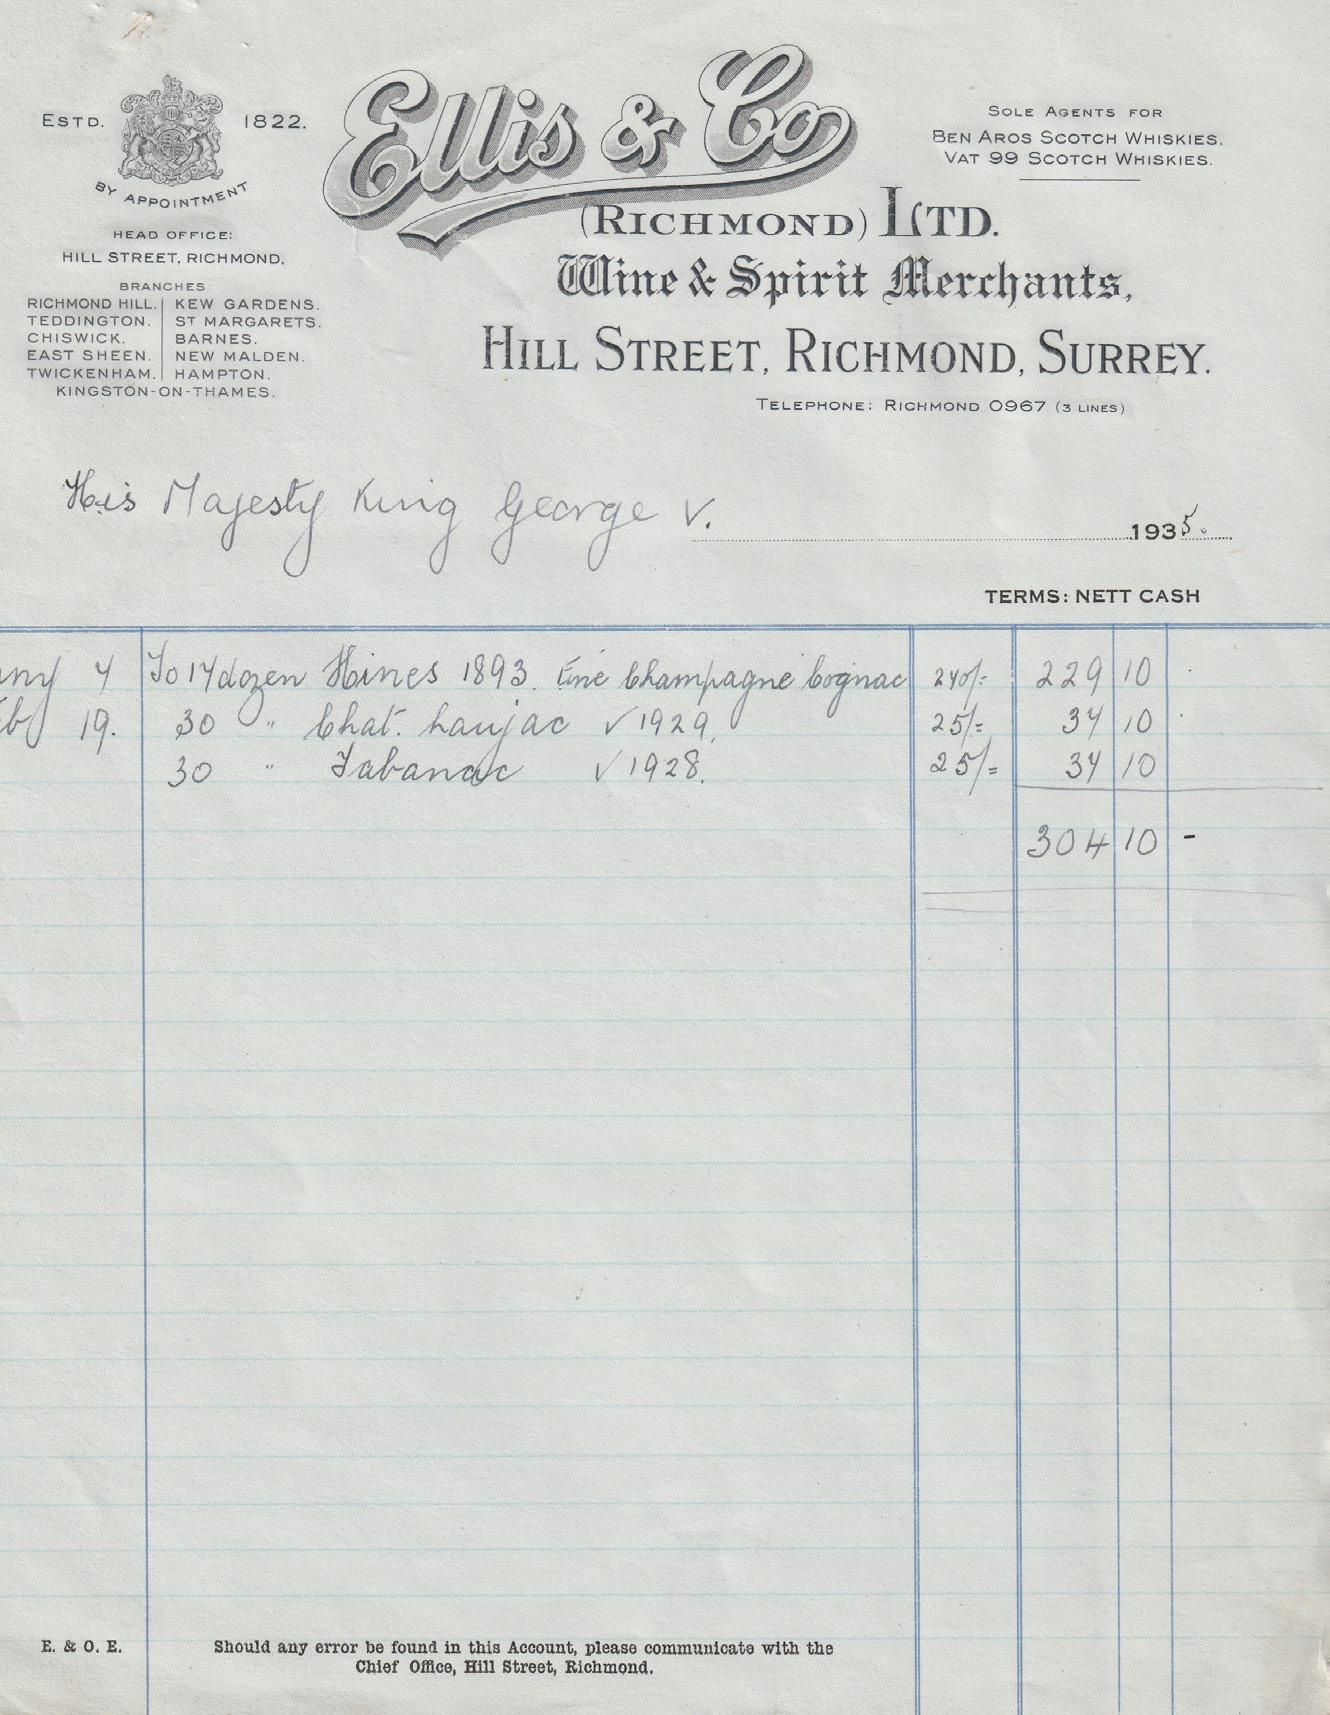 Ellis & Co
(RICHMOND) LTD.
Wine & Spirit Merchants,
HILL STREET, RICHMOND, SURREY.
TELEPHONE: RICHMOND 0967 (3 LINES)
ESTD. 1822.
BY APPOINTMENT
HEAD OFFICE:
HILL STREET, RICHMOND.
BRANCHES
RICHMOND HILL. KEW GARDENS.
TEDDINGTON. ST MARGARETS.
CHISWICK. BARNES.
EAST SHEEN. NEW MALDEN.
TWICKENHAM. HAMPTON.
KINGSTON-ON-THAMES.
SOLE AGENTS FOR
BEN AROS SCOTCH WHISKIES.
VAT 99 SCOTCH WHISKIES.
His Majesty King George V.
1935.
TERMS: NETT CASH
To dozen Hines 1893. Fine Champagne Cognac 240/= 229 10
19. 30 " Chat. V 1929, 25/= 10
30 " Tabanac V 1928. 25/= 10
304 10 -
E. & O. E.
Should any error be found in this Account, please communicate with the
Chief Office, Hill Street, Richmond.